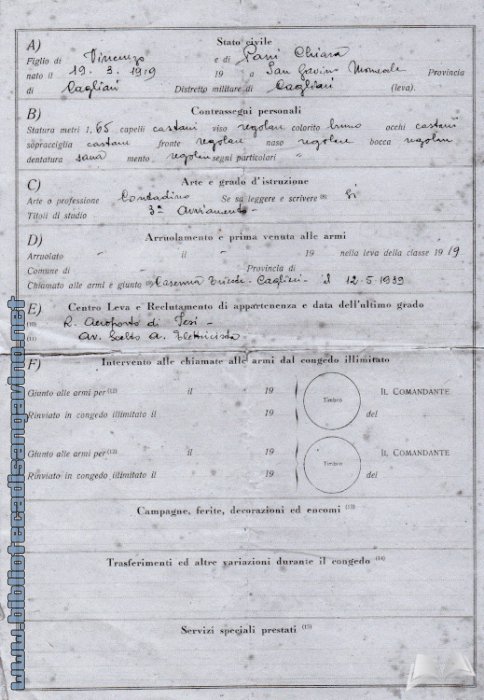 A) Stato civile
Figlio di Vincenzo e di Pani Chiara
nato il 19. 3. 1919 19 a San Gavino Monreale Provincia
di Cagliari Distretto militare di Cagliari (leva).
B) Contrassegni personali
Statura metri 1, 65 capelli castani viso regolare colorito bruno occhi castani
sopracciglia castani fronte regolari naso regolare bocca regolari
dentatura sana mento regolari segni particolari "
C) Arte e grado d'istruzione
Arte o professione Contadino Se sa leggere e scrivere Si
Titoli di studio 3ª Avviamento -
D) Arruolamento e prima venuta alle armi
Arruolato " il " 19 nella leva della classe 1919
Comune di " Provincia di "
Chiamato alle armi è giunto Caserma Cagliari - il 12-5-1939
E) Centro Leva e Reclutamento di appartenenza e data dell'ultimo grado
R. Aeroporto di Jesi -
Av. Scelto A. Elettricista
F) Intervento alle chiamate alle armi dal congedo illimitato
Giunto alle armi per (12) il 19 Timbro IL COMANDANTE
Rinviato in congedo illimitato il 19 del
Giunto alle armi per (12) il 19 Timbro IL COMANDANTE
Rinviato in congedo illimitato il 19 del
Campagne, ferite, decorazioni ed encomi (13)
Trasferimenti ed altre variazioni durante il congedo (14)
Servizi speciali prestati (15)
www.bibliotecadisangavino.net